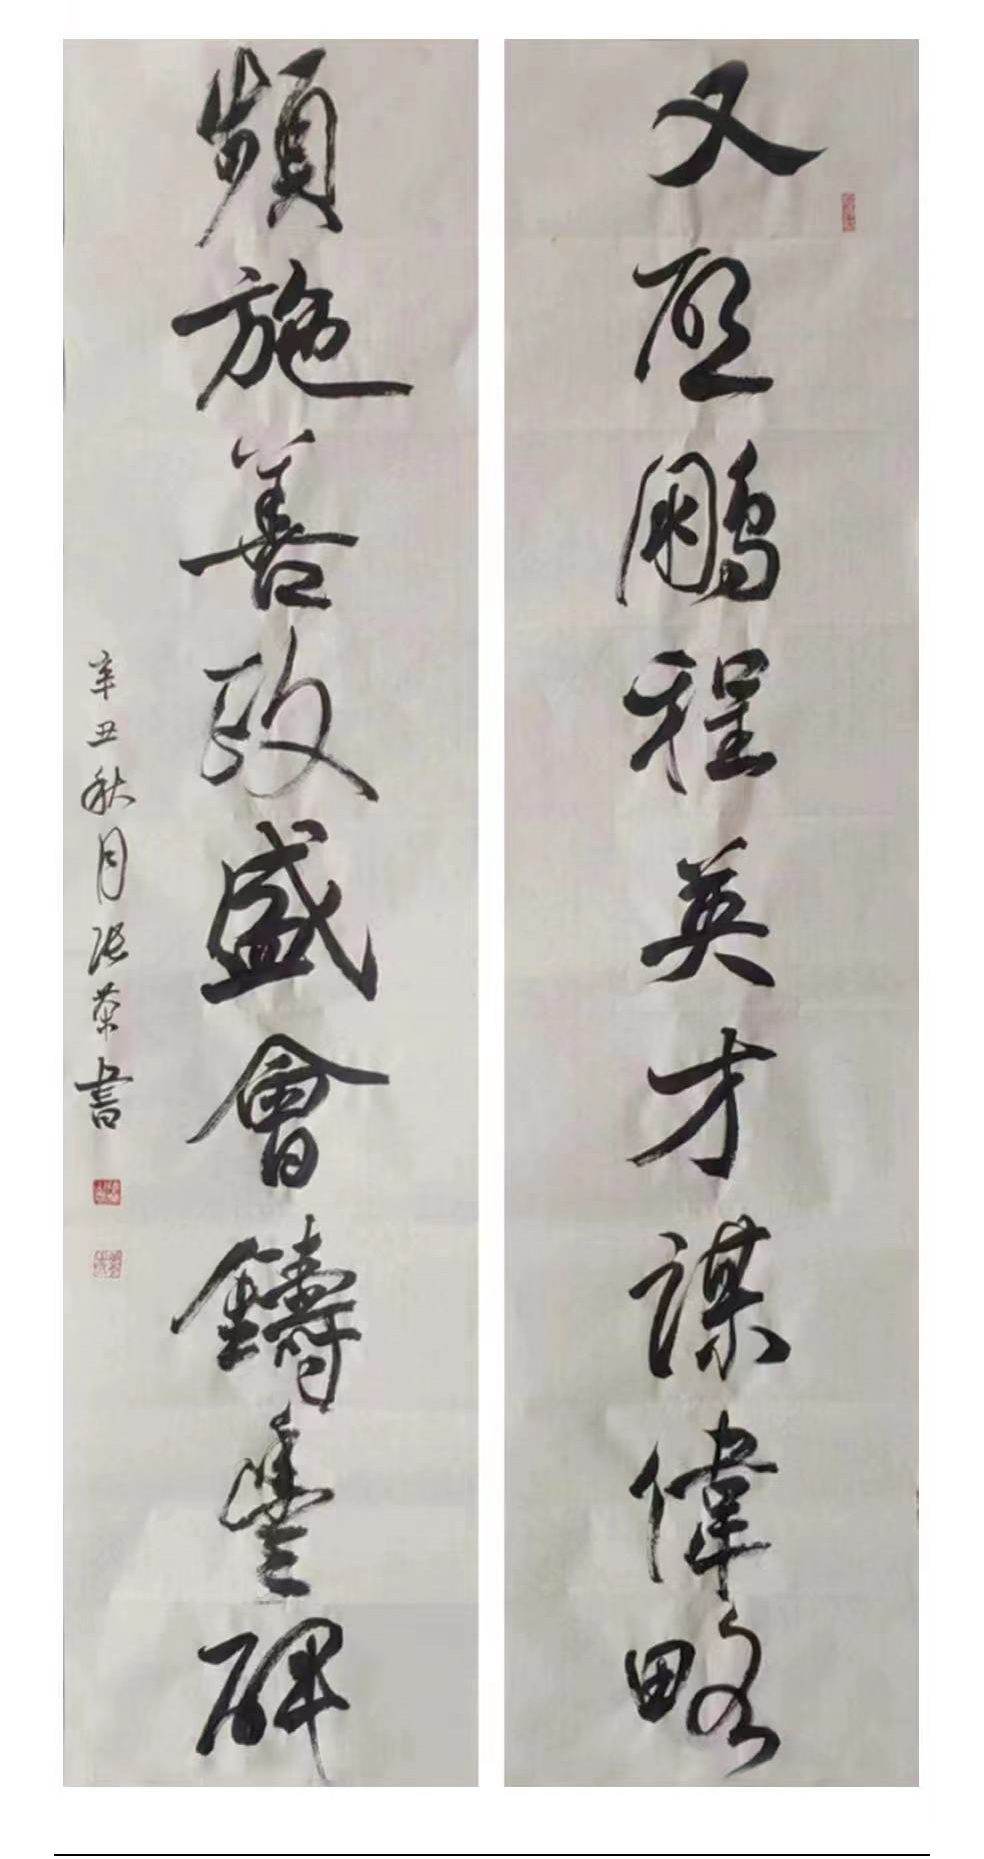 又啟鵬程英才謀偉略
頻施善政盛會鑄豐碑
辛丑秋月張榮書